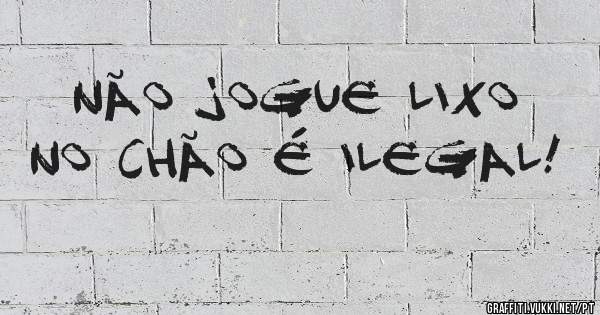 NÃO JOGUE LIXO
NO CHÃO É ILEGAL!
GRAFFITI.VUKKI.NET/PT